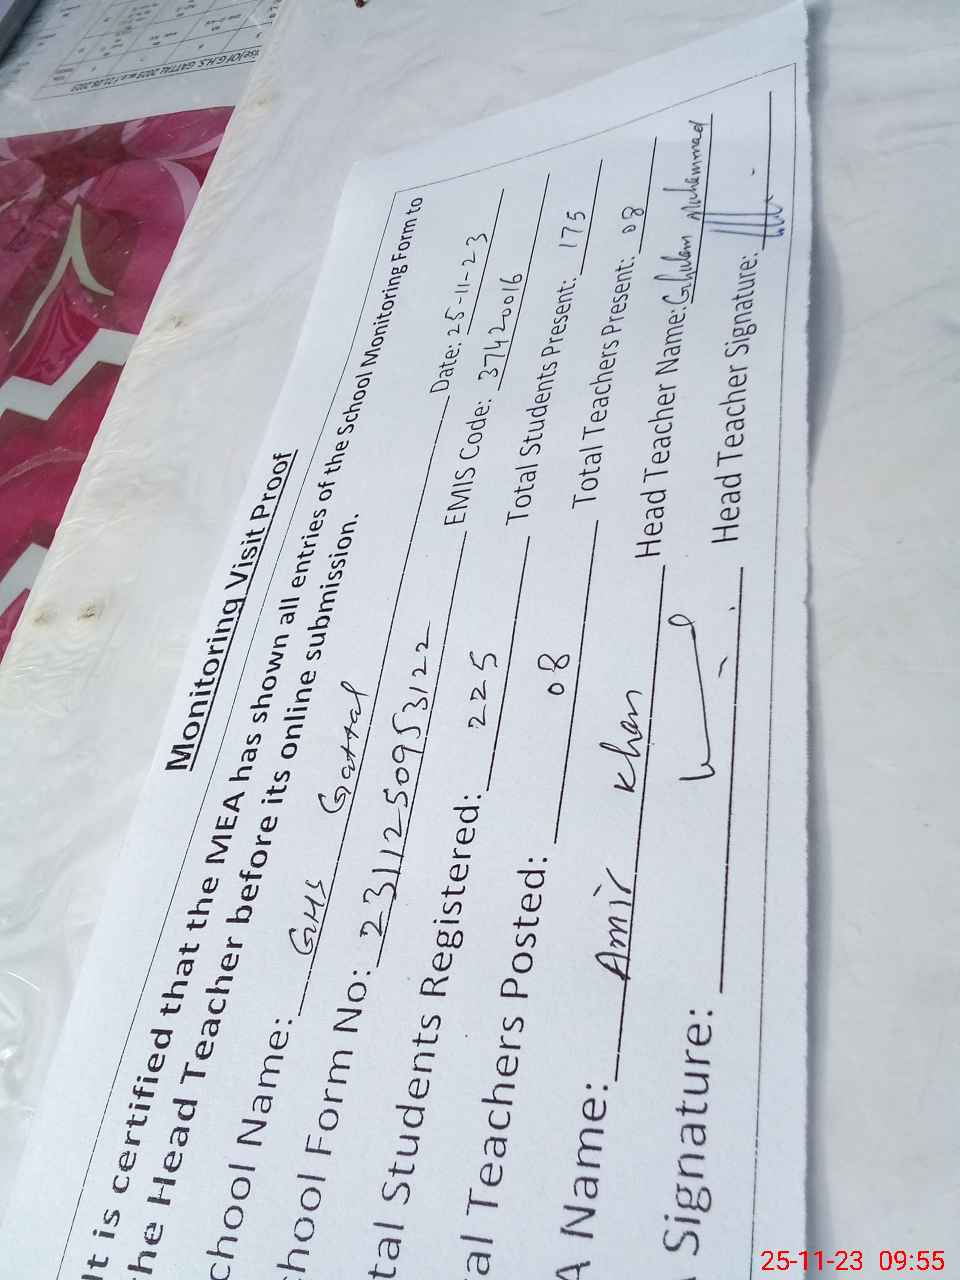 Monitoring Visit Proof
It is certified that the MEA has shown all entries of the School Monitoring Form to
he Head Teacher before its online submission.
chool Name: GHS Gattal Date: 25-11-23
hool Form No: 2311250953122 EMIS Code: 37420016
tal Students Registered: 225 Total Students Present: 175
al Teachers Posted: 08 Total Teachers Present: 08
A Name: Amir Khan Head Teacher Name: Ghulam Muhammad
Signature: Head Teacher Signature:
G.H.S. GATTAL 2023
25-11-23 09:55